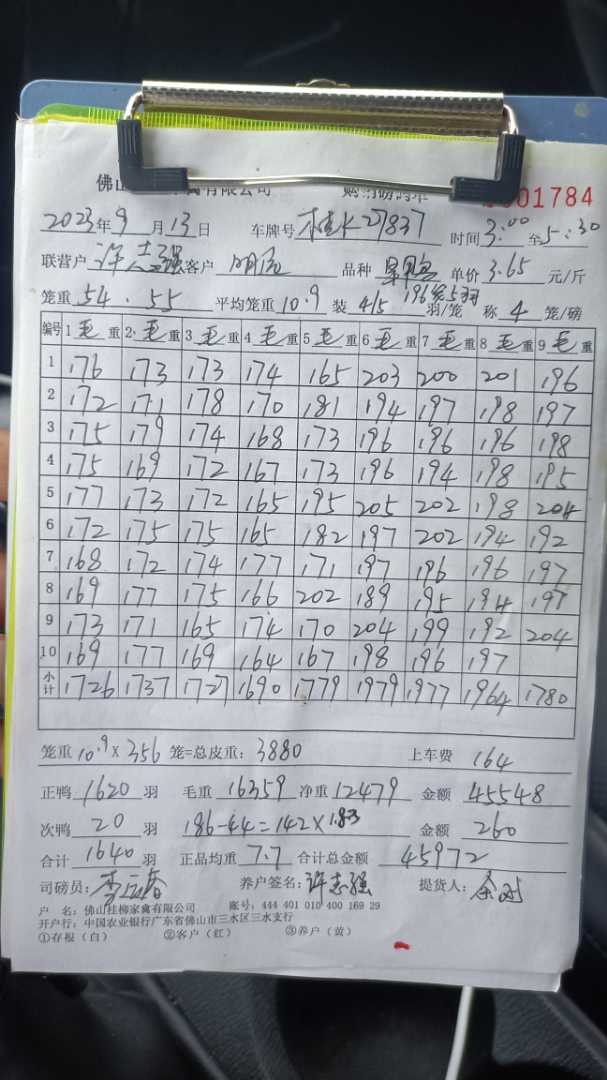 佛山 禽有限公司 购 鸭 单 001784
2023年9月13日 车牌号 桂K27837 时间3:00至5:30
联营户 许志强 客户 品种 单价3.65元/斤
196笼5羽
笼重54.55 平均笼重10.9 装4/5羽/笼 称4笼/磅
编号 1毛重 2毛重 3毛重 4毛重 5毛重 6毛重 7毛重 8毛重 9毛重
1 176 173 173 174 165 203 200 201 196
2 172 171 178 170 181 194 197 198 197
3 175 179 174 168 173 196 196 196 198
4 175 169 172 167 173 196 194 198 195
5 177 173 172 165 195 205 202 198 204
6 172 175 175 165 182 197 202 194 192
7 168 172 174 177 171 197 196 196 197
8 169 177 175 166 202 189 195 194 197
9 173 171 165 174 170 204 199 192 204
10 169 177 169 164 167 198 196 197
小计 1726 1737 1727 1690 1779 1979 1977 1964 1780
笼重10.9×356笼=总皮重:3880 上车费 164
正鸭1620羽 毛重16359 净重12479 金额45548
次鸭20羽 186-44=142×1.83 金额260
合计1640羽 正品均重7.7 合计总金额45972
司磅员: 养户签名:许志强 提货人:
户 名:佛山桂柳家禽有限公司 账号:444 401 010 400 169 29
开户行:中国农业银行广东省佛山市三水区三水支行
①存根(白) ②客户(红) ③养户(黄)